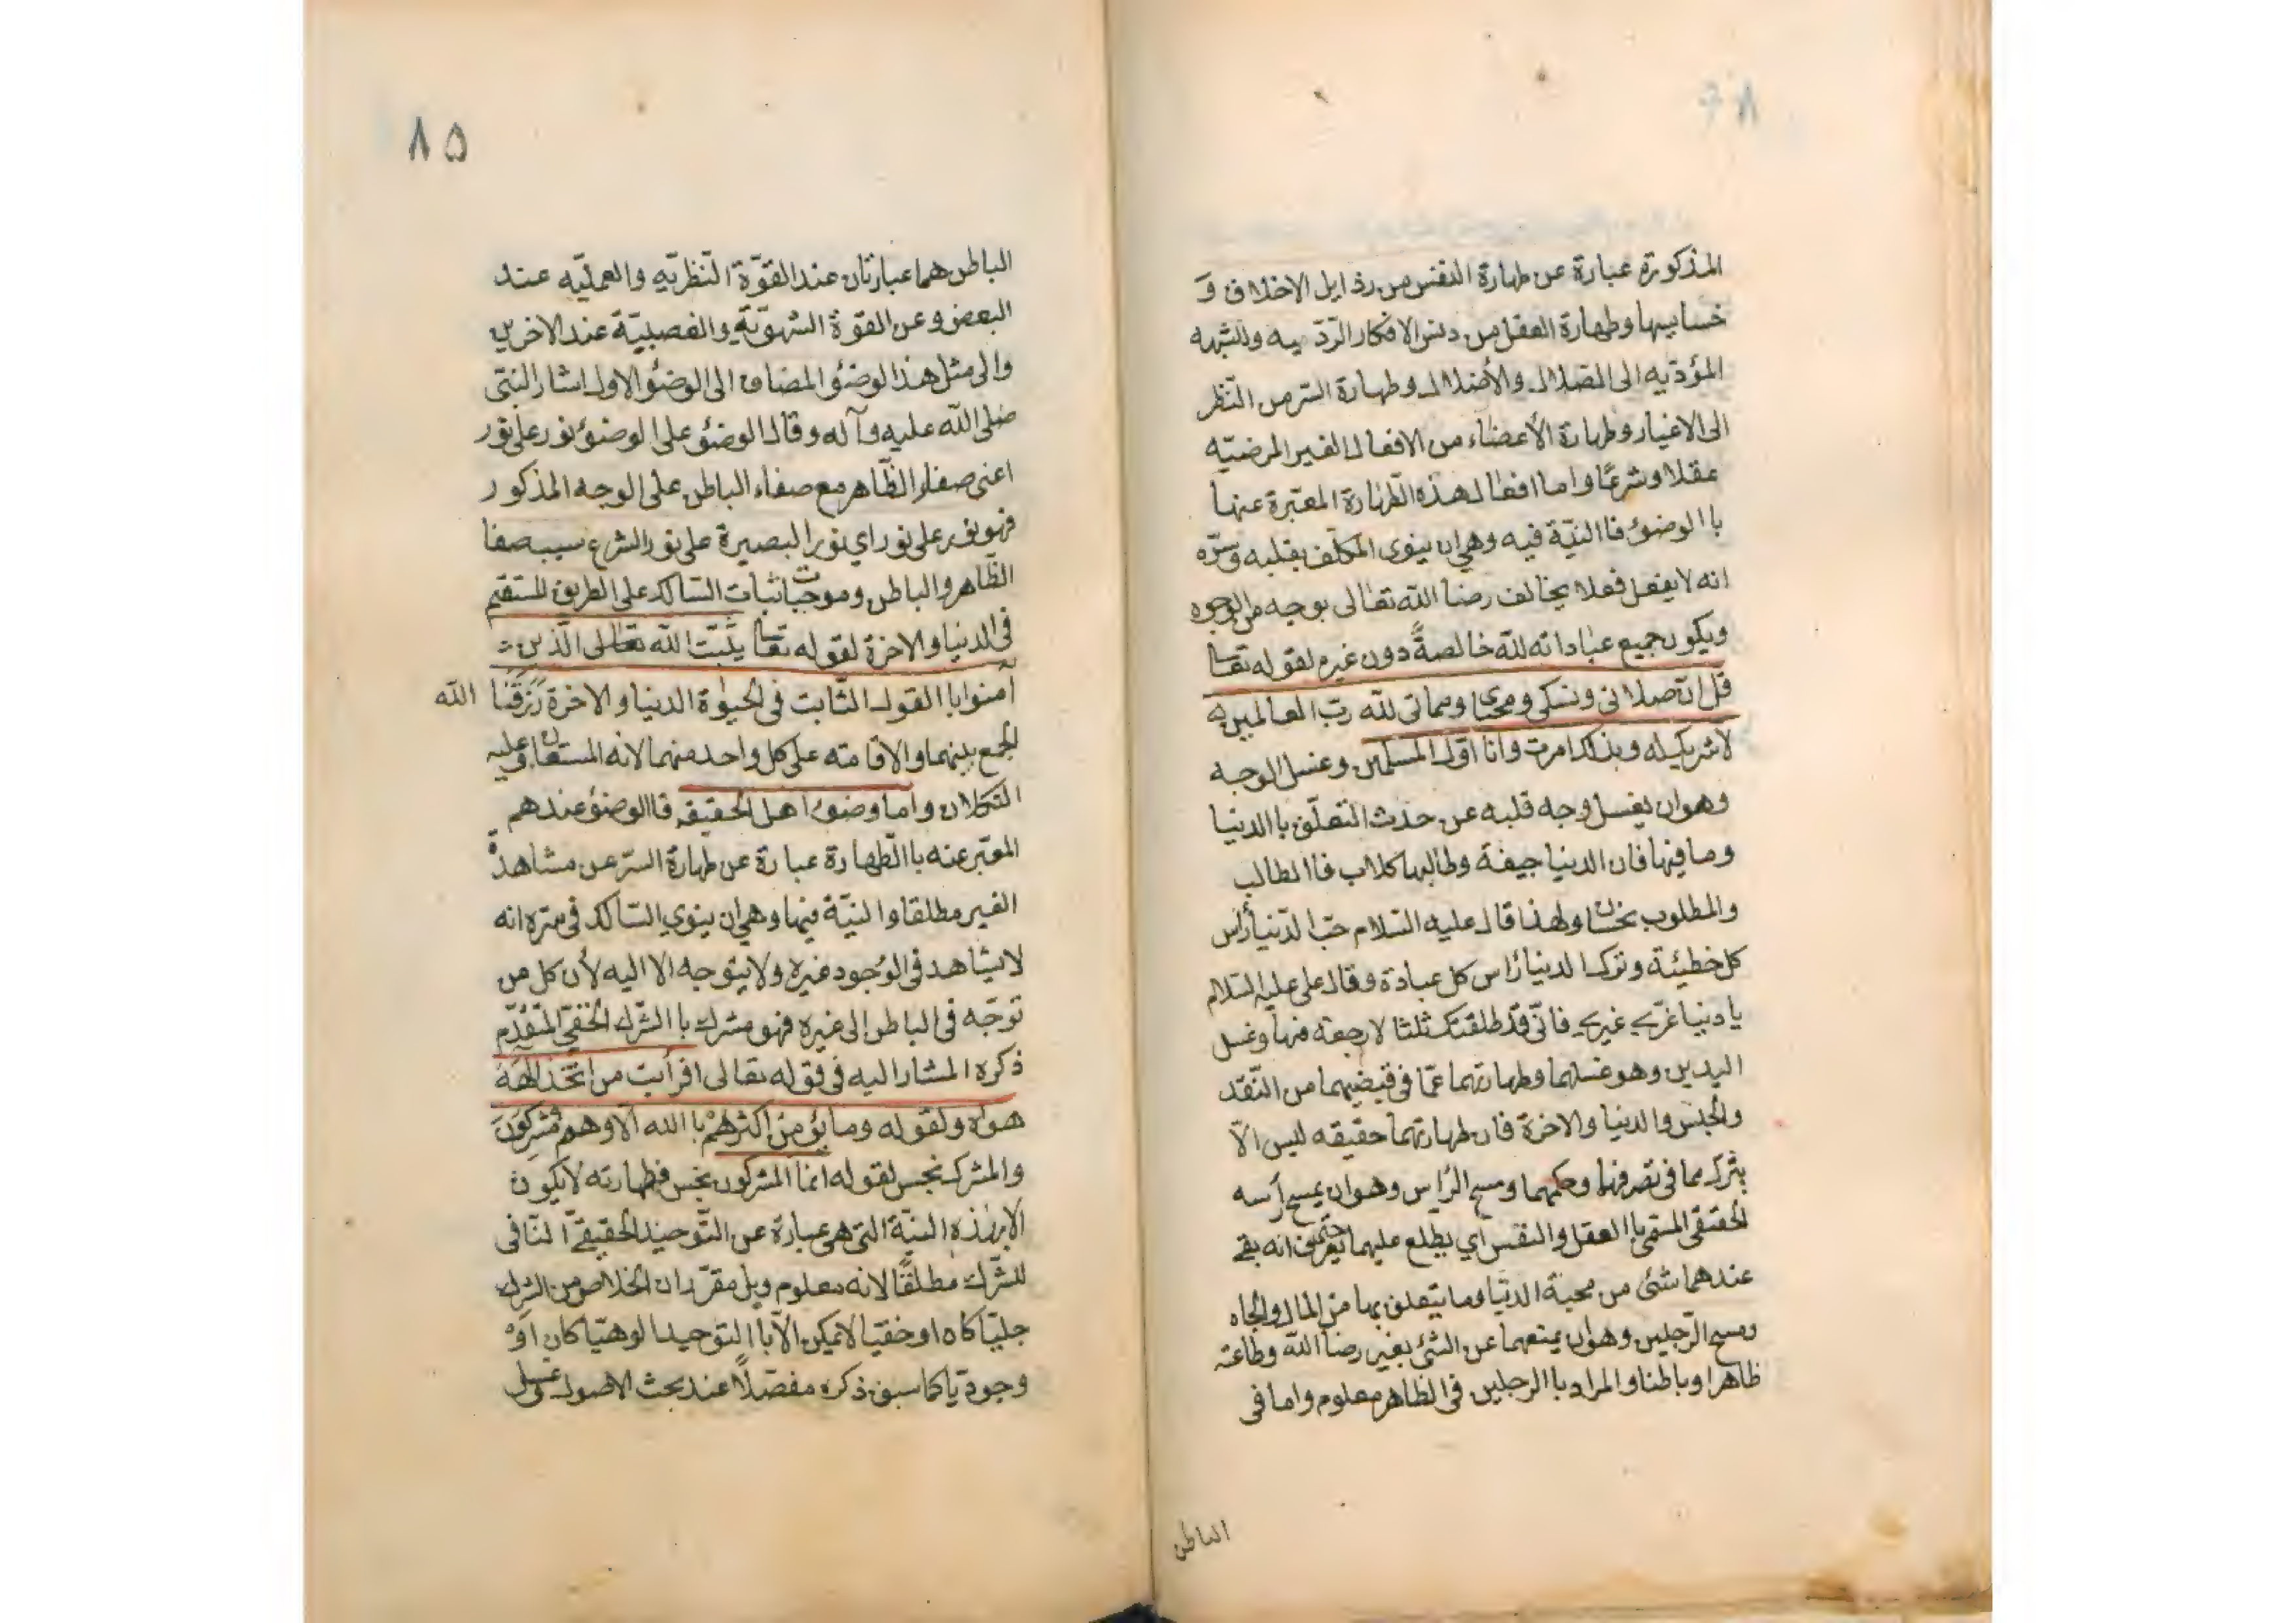 المذكوره عبارة عن طهارة النفس من رذايل الاخلاق و
خسايسها وطهارة العقل من دنس الافكار الردّيه والشبهه
المؤدّيه الى الضلال والأضلال وطهارة السرّ من النّظر
الى الاغيار وطهارة الأعضاء من الافعال الغير المرضيّه
عقلا وشرعًا واما افعال هذه الطّهارة المعتبرة عنها
باالوضوء فاالنيّة فيه وهي ان ينوى المكلّف بقلبه وسرّه
انه لا يفعل فعلا يخالف رضا الله تعالى بوجه من الوجوه
ويكون جميع عباداته لله خالصةً دون غيره لقوله تعا
قل انّ صلاتى ونسكى ومحياى ومماتى لله ربّ العالمين
لا شريك له وبذلك امرت وانا اوّل المسلمين وغسل الوجه
وهو ان يغسل وجه قلبه عن حدث التعلّق باالدنيا
وما فيها فان الدنيا جيفة وطالبها كلاب فاالطالب
والمطلوب نجسان ولهذا قال عليه السّلام حبّ الدّنيا رأس
كل خطيئة وترك الدنيا رأس كل عبادة وقال على عليه السّلام
يا دنيا غرّى غيرى فانّى قد طلقتك ثلثا لا رجعة فيها وغسل
اليدين وهو غسلهما وطهارتهما عمّا فى قبضيهما من النّقد
والجنس والدنيا والاخرة فان طهارتهما حقيقه ليس الاّ
بترك مما فى تصرفهما وحكمهما ومسح الرّاس وهو ان يمسح رأسه
الحقيقى المسمّى باالعقل والنفس اي يطلع عليهما حتى يعرف انه بقى
عندهما شئ من محبة الدنيا وما يتعلق بها من المال والجاه
ومسح الرّجلين وهو ان يمنعهما عن الشئ بغير رضا الله وطاعته
ظاهرا وباطنا والمراد باالرجلين فى الظاهر معلوم واما فى
الباطن
٨٥
الباطن هما عبارتان عند القوّة النّظريّه والعمليّه عند
البعض وعن القوة الشهويّة والغضبيّة عند الاخرين
والى مثل هذا الوضؤ المضاف الى الوضؤ الاول اشار النبىّ
صلى الله عليه وآله وقال الوضؤ على الوضؤ نور على نور
اعنى صفاء الظّاهر مع صفاء الباطن على الوجه المذكور
فهو نور على نور اي نور البصيرة على نور الشرع سبب صفا
الظاهر والباطن وموجبات اثبات السّالك على الطريق المستقيم
فى الدنيا والاخرة لقوله تعا يثبّت الله تعالى الّذين
آمنوا باالقول الثّابت فى الحيوة الدنيا والاخرة رزقنا الله
الجمع بينهما والاقامته على كل واحد منهما لانه المستعان وعليه
التكلان واما وضوء اهل الحقيقه فاالوضؤ عندهم
المعتبر عنه باالطّهارة عبارة عن طهارة السرّ عن مشاهدة
الغير مطلقا والنيّة فيها وهي ان ينوي السّالك فى سرّه انه
لا يشاهد فى الوجود غيره ولا يتوجه الا اليه لأن كل من
توجّه فى الباطن الى غيره فهو مشرك باالشّرك الخفيّ المتقدّم
ذكره المشار اليه فى قوله تعالى افرأيت من اتّخذ الهه
هواه ولقوله وما يؤمن اكثرهم باالله الاّ وهم مشركون
والمشرك نجس لقوله انما المشركون نجس فطهارته لا يكون
الا بهذه النيّة التى هى عبارة عن التّوحيد الحقيقيّ النّافى
للشّرك مطلقًا لانه معلوم وبل مقرّر ان الخلاص من الشرك
جليّا كان او خفيّا لا يمكن الاّ باالتوحيد الوهيّا كان اوْ
وجوديّا كما سبق ذكره مفصّلاً عند بحث الاصول وغسل